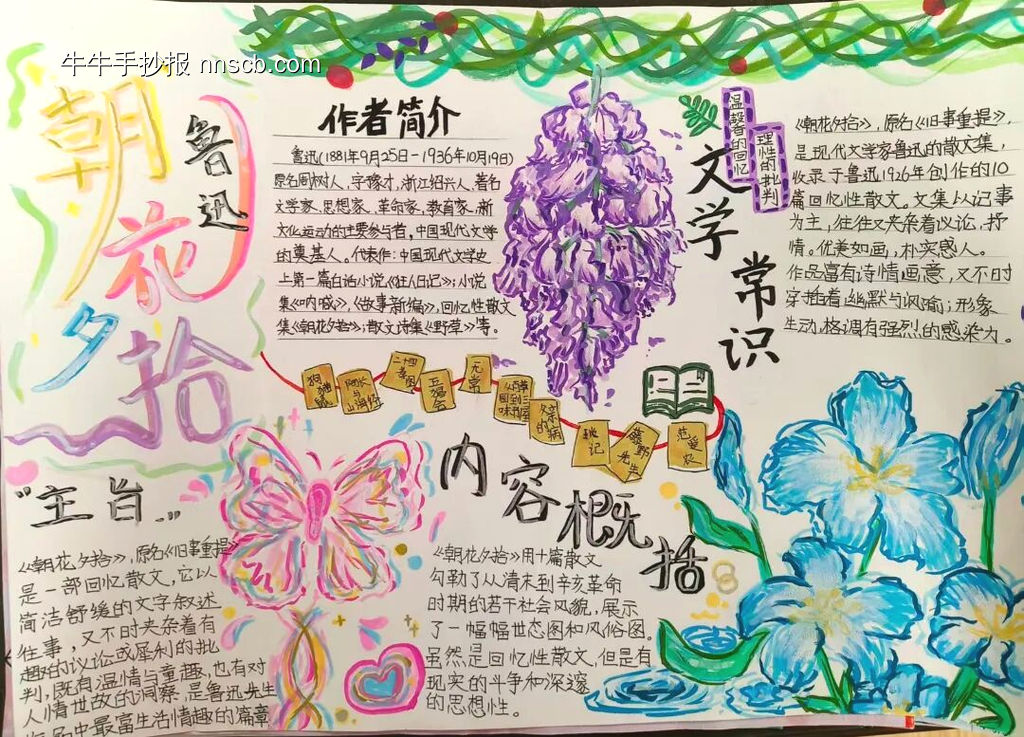 牛牛手抄报 nnscb.com
朝花夕拾
鲁迅
作者简介
鲁迅(1881年9月25日-1936年10月19日)
原名周树人,字豫才,浙江绍兴人,著名
文学家、思想家、革命家、教育家、新
文化运动的主要参与者,中国现代文学
的奠基人。代表作:中国现代文学史
上第一篇白话小说《狂人日记》;小说
集《呐喊》、《故事新编》,回忆性散文
集《朝花夕拾》;散文诗集《野草》等。
温馨的回忆
理性的批判
文学常识
《朝花夕拾》,原名《旧事重提》,
是现代文学家鲁迅的散文集,
收录于鲁迅1926年创作的10
篇回忆性散文。文集以记事
为主,往往又夹杂着议论,抒
情。优美如画,朴实感人。
作品富有诗情画意,又不时
穿插着幽默与讽喻;形象
生动,格调有强烈的感染力。
狗猫鼠
阿长与山海经
二十四孝图
五猖会
无常
从百草园到三味书屋
父亲的病
琐记
藤野先生
范爱农
"主旨"
《朝花夕拾》,原名《旧事重提》
是一部回忆散文,它以
简洁舒缓的文字叙述
往事,又不时夹杂着有
趣的议论或犀利的批
判,既有温情与童趣,也有对
人情世故的洞察,是鲁迅先生
作品中最富生活情趣的篇章
内容概括
《朝花夕拾》用十篇散文
勾勒了从清末到辛亥革命
时期的若干社会风貌,展示
了一幅幅世态图和风俗图。
虽然是回忆性散文,但是有
现实的斗争和深邃
的思想性。